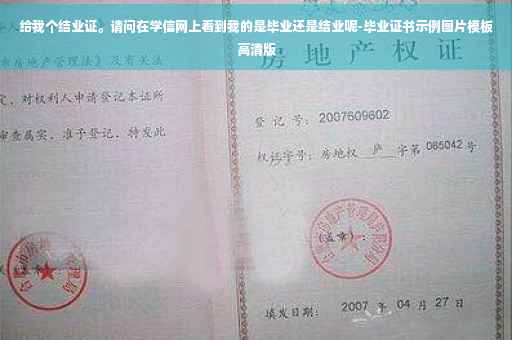 给我个结业证。请问在学信网上看到我的是毕业还是结业呢-毕业证书示例图片模板
高清版
房地产权
房地产管理法》及有关法
定，对权利人申请登记本证所
审查属实，准予登记，特发此
登 记 号：2007609602
权证字号：房地权 庐 字第 065042 号
(盖章)：
填发日期：2007 年 04 月 27 日